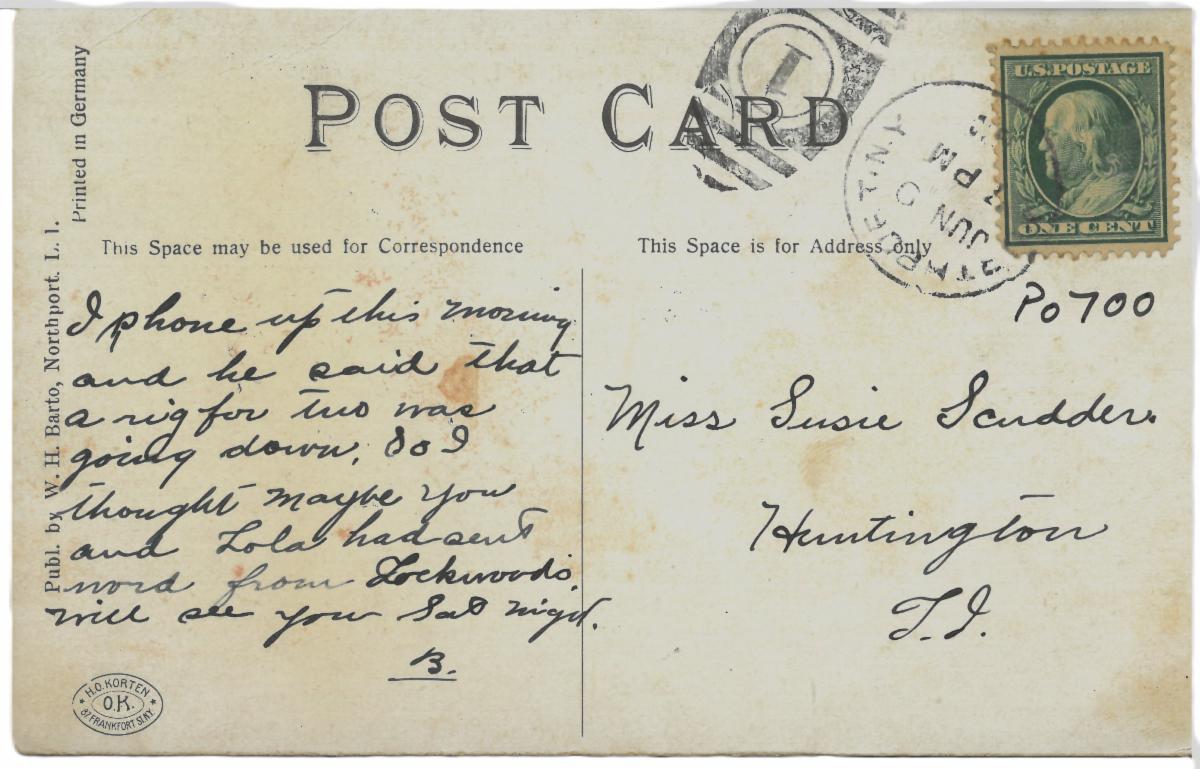 Printed in Germany
Publ. by W. H. Barto, Northport. L. I.
POST CARD
1
N.Y.
JUN
PM
U.S. POSTAGE
ONE CENT
This Space may be used for Correspondence
This Space is for Address only
Po 700
I phone up this morning
and he said that
a rig for two was
going down. So I
thought maybe you
and Lola had sent
word from Lockwoods.
will see you Sat night.
B.
Miss Susie Scudder.
Huntington
L.I.
H.O. KORTEN
O.K.
87 FRANKFORT ST. N.Y.